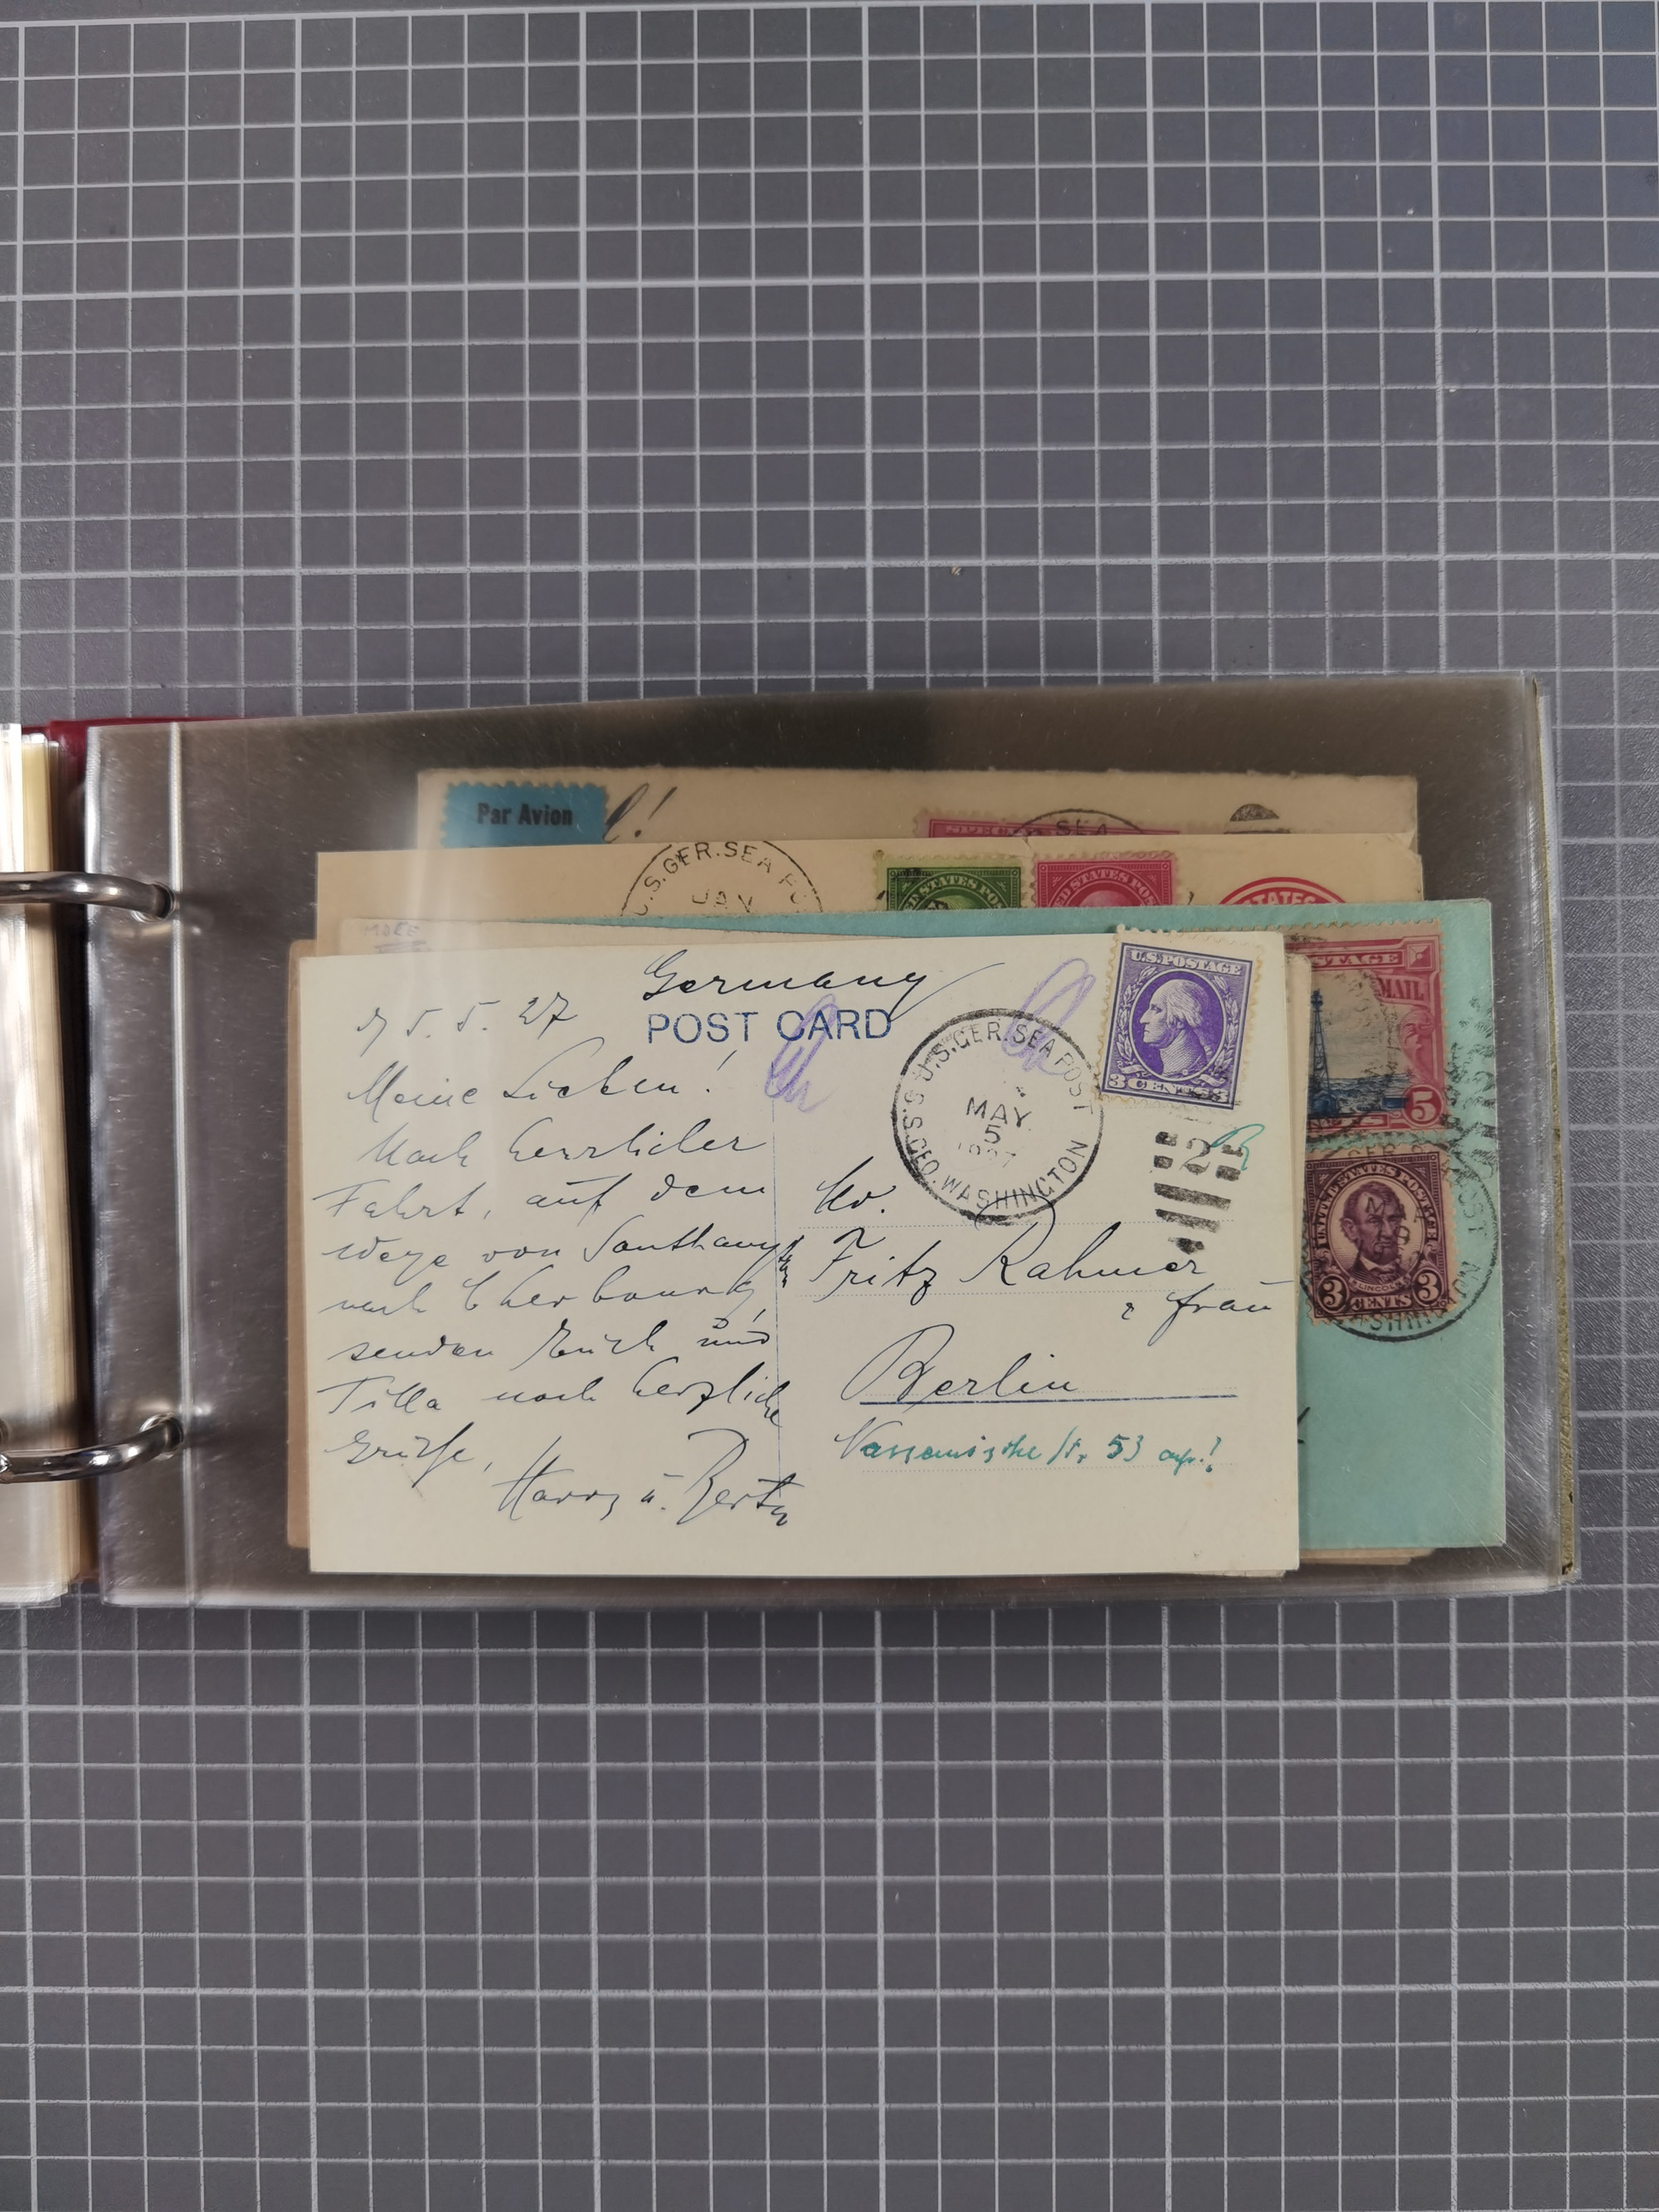 Par Avion
l!
SPECI
SEA
U.S.GER.SEA PO
JAN
UNITED STATES POS
UNITED STATES POS
STATES
MORE
Germany
5. 5. 27
POST CARD
Meine Lieben!
Nach herrlicher
Fahrt, auf dem
Wege von Southampton
nach Cherbourg,
senden Euch und
Tilla noch herzliche
Grüße,
Harry u. Berty
U.S.GER.SEA POST
MAY
5
1927
S.S. GEO. WASHINGTON
2
U.S. POSTAGE
3 CENTS 3
Fritz Rahmer
& Frau
Berlin
53
STAGE
MAIL
5
UNITED STATES POSTAGE
LINCOLN
3 CENTS 3